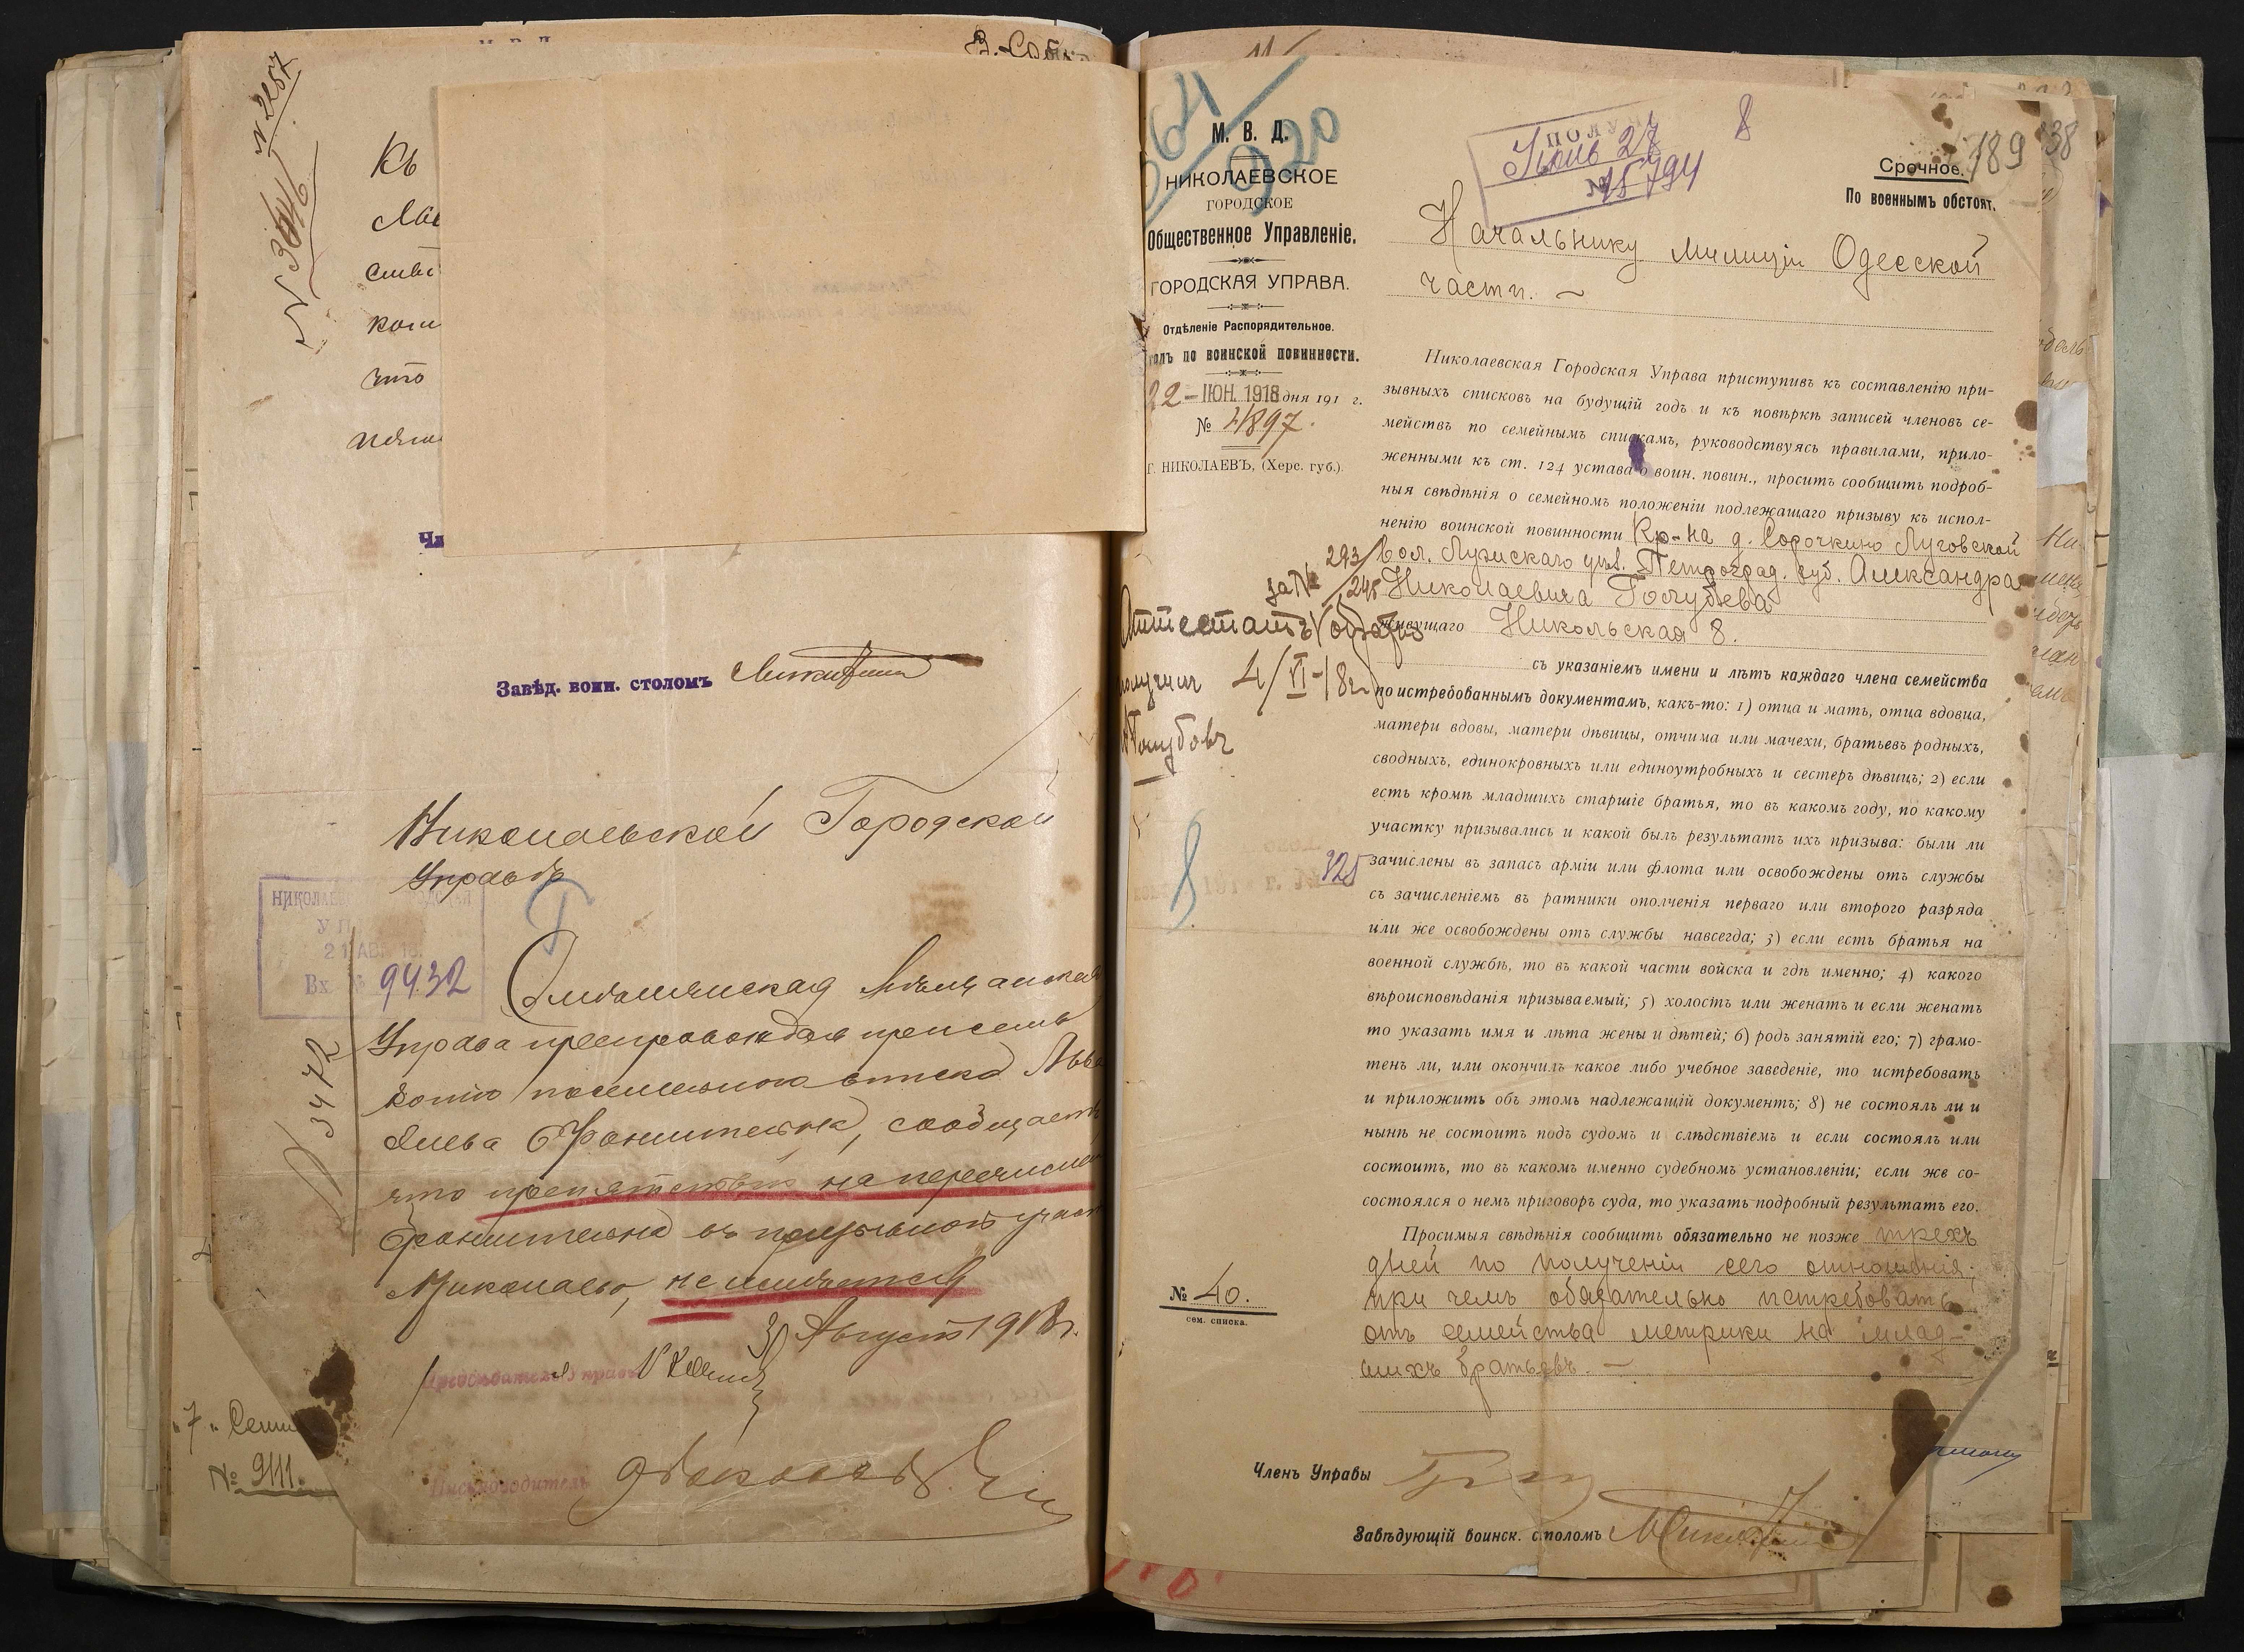 № 2257
Къ
что
Завѣд. воин. столомъ
Николаевской Городской
Управѣ
21 АВГ. 18
Вх. № 9432
Мѣщанская
Управа препровождая при семъ
копію посемейнаго списка
сообщаетъ
что препятствій на перечисле
въ призывной участ
Николаевъ, не имѣется
Августа 1918 г.
3472
Предсѣдатель Управы
Письмоводитель
"7" Сент
№ 9111.
М. В. Д.
НИКОЛАЕВСКОЕ
ГОРОДСКОЕ
Общественное Управленіе.
ГОРОДСКАЯ УПРАВА.
Отдѣленіе Распорядительное.
толъ по воинской повинности.
22 - ІЮН. 1918 дня 191 г.
№ 4897.
Г. НИКОЛАЕВЪ, (Херс. губ.).
920
Іюнь 27
№ 15794
8
189
38
Срочное.
По военнымъ обстоят.
Начальнику Милиціи Одесской
части.
Николаевская Городская Управа приступивъ къ составленію при-
зывныхъ списковъ на будущій годъ и къ повѣркѣ записей членовъ се-
мействъ по семейнымъ спискамъ, руководствуясь правилами, прило-
женными къ ст. 124 устава о воин. повин., проситъ сообщить подроб-
ныя свѣдѣнія о семейномъ положеніи подлежащаго призыву къ испол-
ненію воинской повинности Кр-на д. Сорочкино Луговской
вол. Лужскаго уѣз. Петроград. губ. Александра
Николаевича Голубева
живущаго Никольская 8.
съ указаніемъ имени и лѣтъ каждаго члена семейства
по истребованнымъ документамъ, какъ-то: 1) отца и мать, отца вдовца,
матери вдовы, матери дѣвицы, отчима или мачехи, братьевъ родныхъ,
сводныхъ, единокровныхъ или единоутробныхъ и сестеръ дѣвицъ; 2) если
есть кромѣ младшихъ старшіе братья, то въ какомъ году, по какому
участку призывались и какой былъ результатъ ихъ призыва: были ли
зачислены въ запасъ арміи или флота или освобождены отъ службы
съ зачисленіемъ въ ратники ополченія перваго или второго разряда
или же освобождены отъ службы навсегда; 3) если есть братья на
военной службѣ, то въ какой части войска и гдѣ именно; 4) какого
вѣроисповѣданія призываемый; 5) холостъ или женатъ и если женатъ
то указать имя и лѣта жены и дѣтей; 6) родъ занятій его; 7) грамо-
тенъ ли, или окончилъ какое либо учебное заведеніе, то истребовать
и приложить объ этомъ надлежащій документъ; 8) не состоялъ ли и
нынѣ не состоитъ подъ судомъ и слѣдствіемъ и если состоялъ или
состоитъ, то въ какомъ именно судебномъ установленіи; если же со-
состоялся о немъ приговоръ суда, то указать подробный результатъ его.
Просимыя свѣдѣнія сообщить обязательно не позже трехъ
дней по полученіи сего отношенія,
при чемъ обязательно истребовать
отъ семейства метрики на млад-
шихъ братьевъ.
за № 293/295
Аттестатъ
получилъ 4/VI-18 г.
325
8
№ 40.
сем. списка.
Членъ Управы
Завѣдующій воинск. столомъ